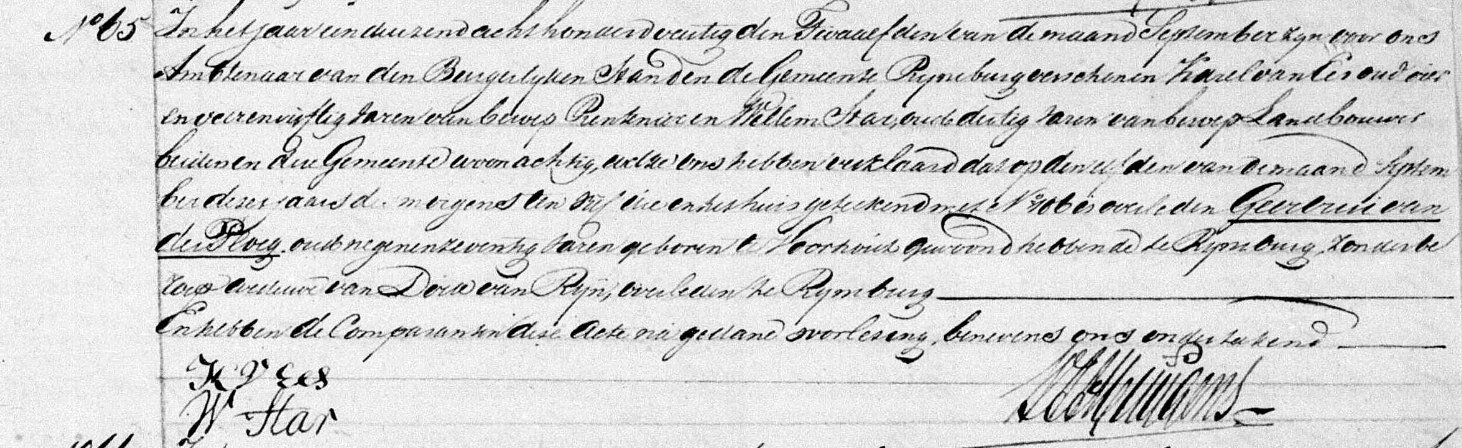 No 65 In het jaar een duizend acht honderd veertig den Twaalfden van de maand September zyn voor ons
Ambtenaar van den Burgerlyken Stand en de Gemeente Rynsburg verschenen Karel van Es oud vier
en veertig Jaren van beroep Rentenier en Willem Star, oud dertig Jaren van beroep Landbouwer
beiden in deze Gemeente woonachtig, welke ons hebben verklaard dat op den elfden van de maand Septem
ber dezes jaars des morgens ten vyf ure in het huis getekend met No 106 is overleden Geertrui van
der Ploeg oud negenenzeventig Jaren geboren te Voorhout gewoond hebbende te Rynsburg, zonder be
roep weduwe van Dirk van Ryn, overleden te Rynsburg
En hebben de Comparanten deze Acte na gedane voorlezing, benevens ons ondertekend
K v Es
W Star